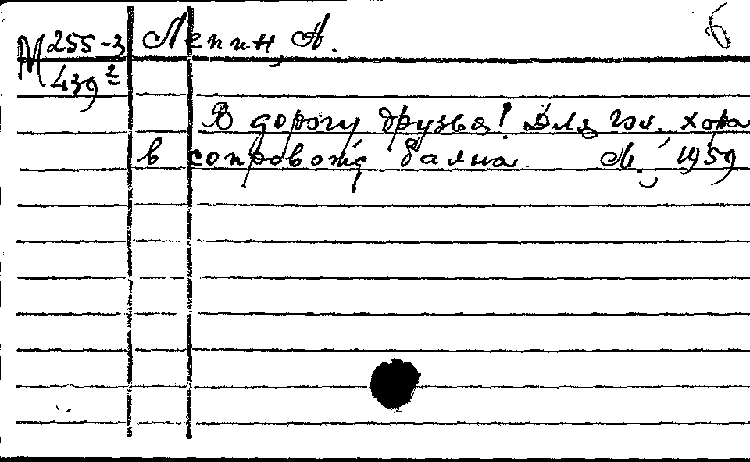 М 255-3 Лепин, А. б
439²
В дорогу друзья! Для гол. хора
в сопровожд баяна М., 1959